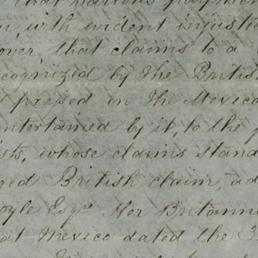 that various
with evident injustice
over, that claims to a
recognized by the British
on the Mexica
entertained by it, to the
whose claims stand
British claim, ad
oyle Esqr Her Britanni
at Mexico dated the 3